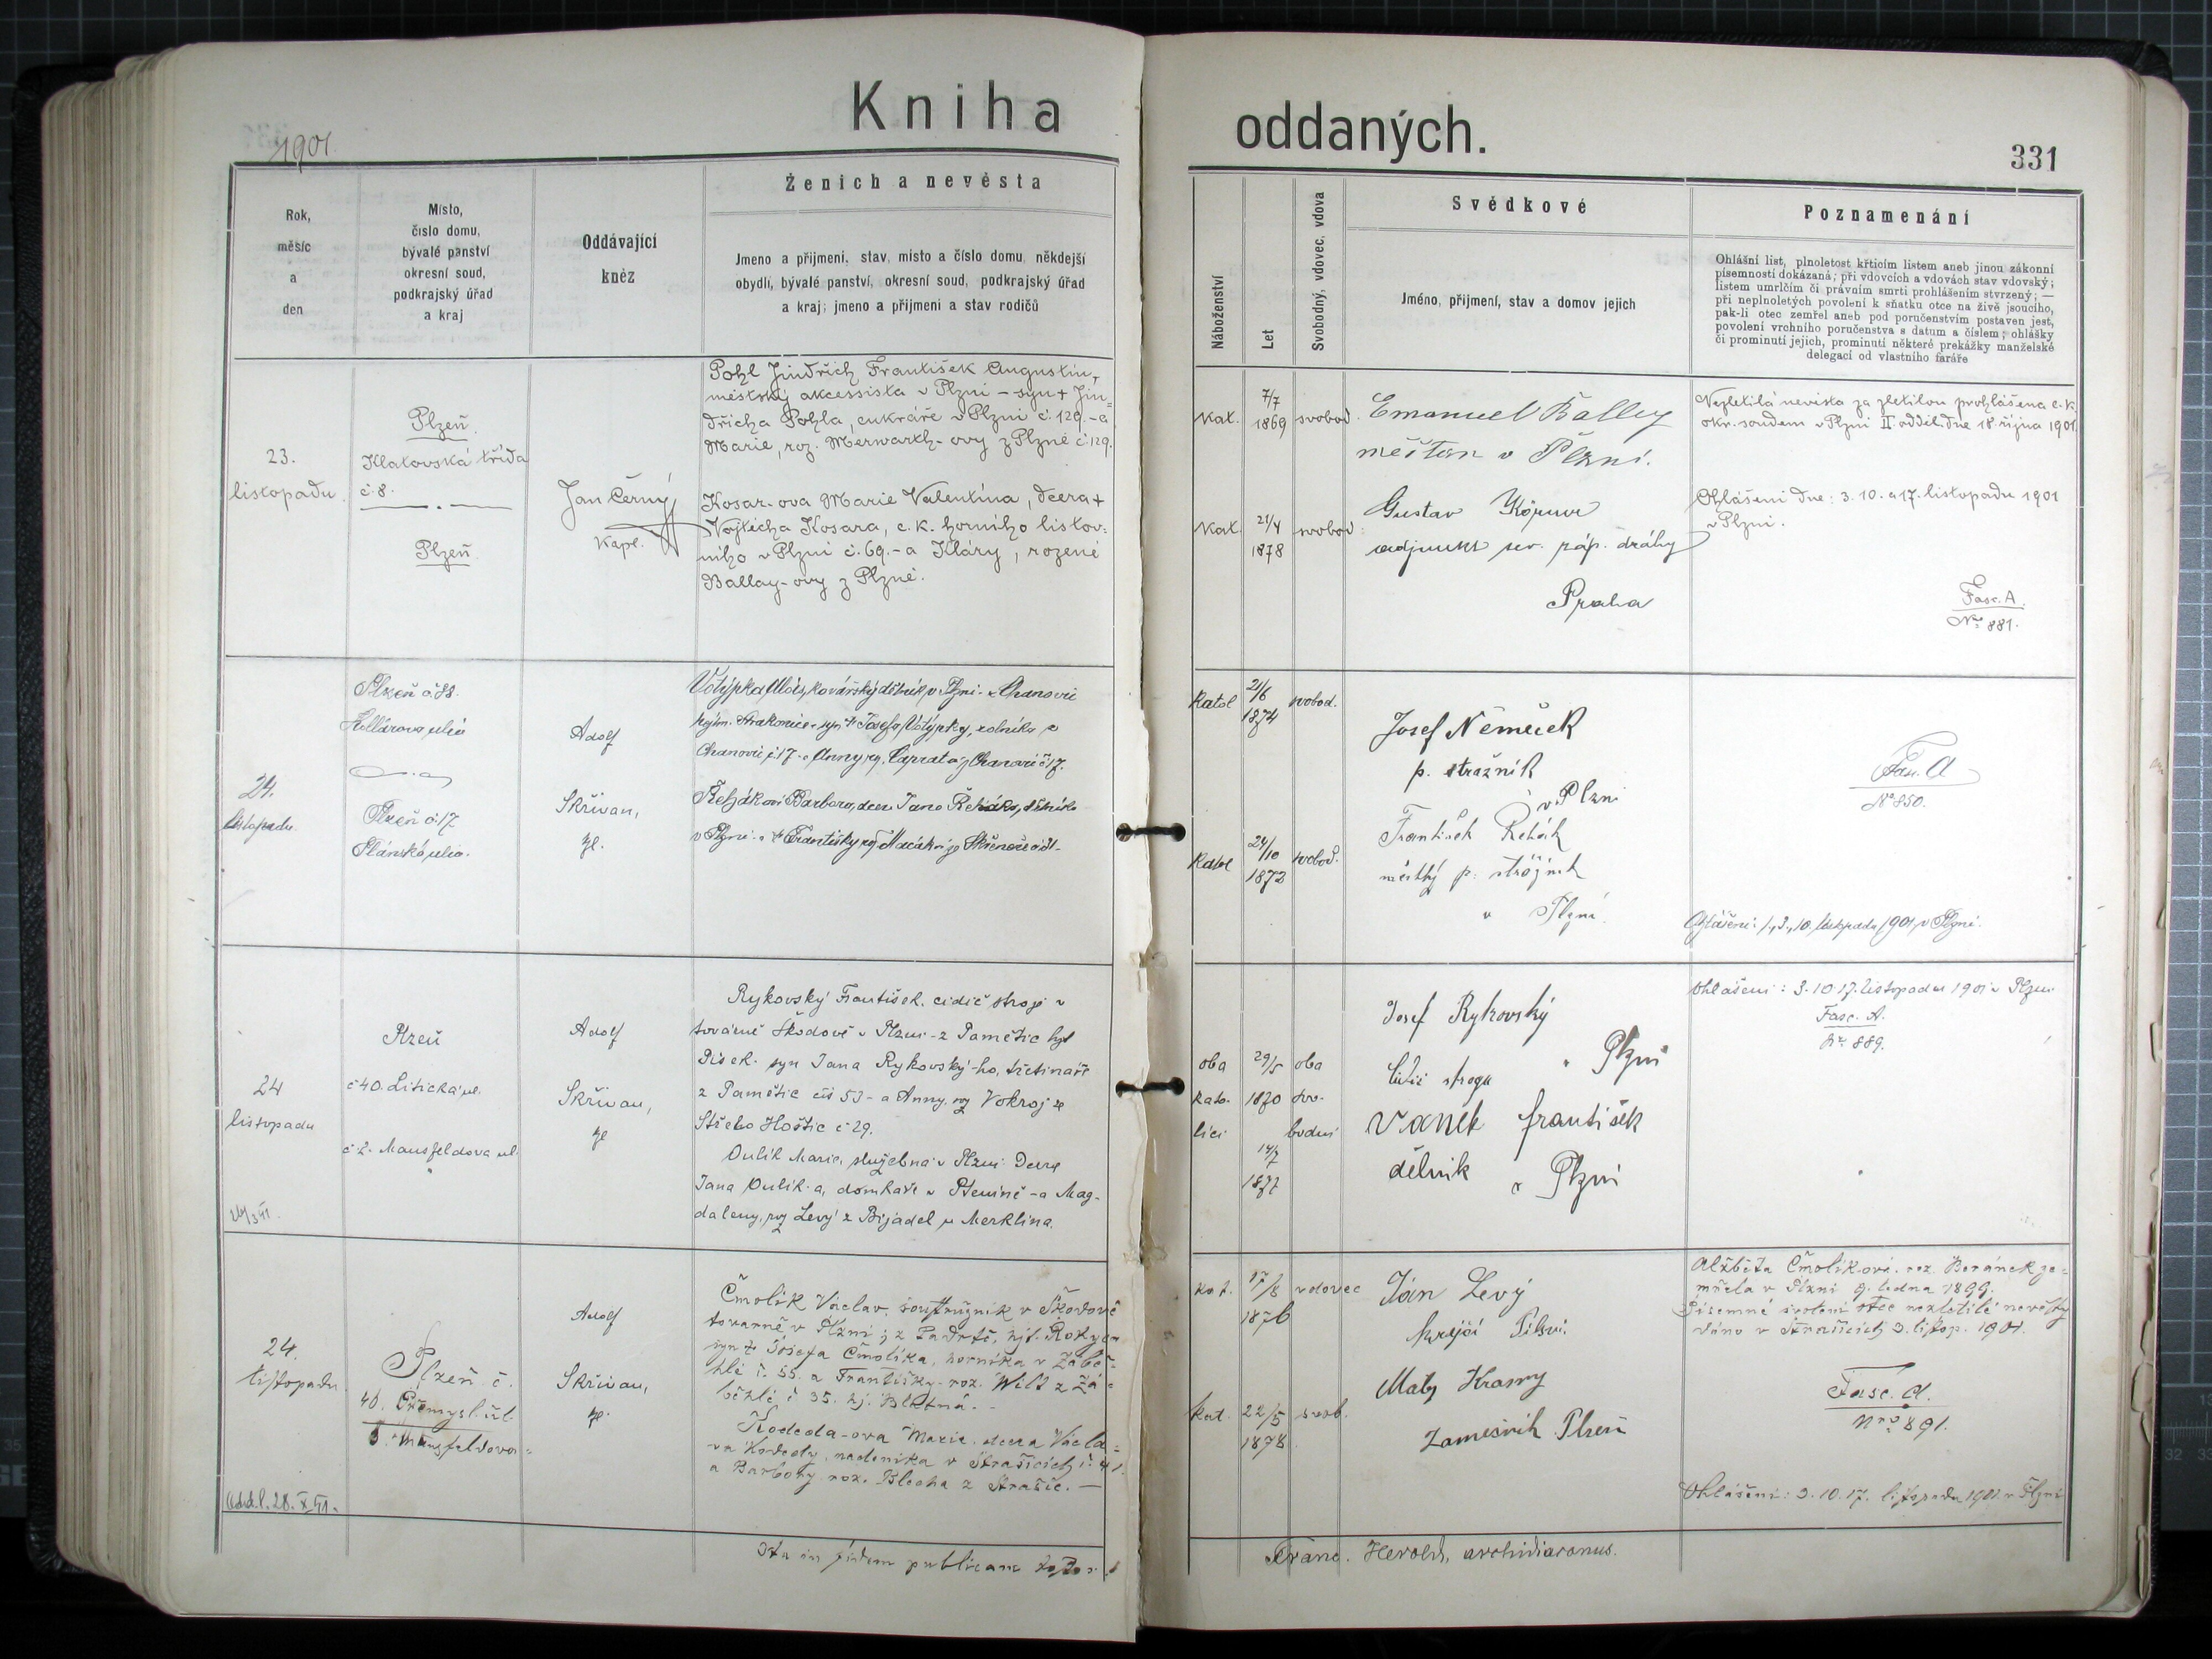 Kniha oddaných.
1901
331
Rok,
měsíc
a
den
Místo,
číslo domu,
bývalé panství
okresní soud,
podkrajský úřad
a kraj
Oddávající
kněz
Ženich a nevěsta
Jmeno a přijmeni, stav, misto a číslo domu, někdejší
obydlí, bývalé panství, okresní soud, podkrajský úřad
a kraj; jmeno a přijmeni a stav rodičů
Náboženství
Let
Svobodný, vdovec, vdova
Svědkové
Jméno, přijmení, stav a domov jejich
Poznamenání
Ohlášní list, plnoletost křticím listem aneb jinou zákonní
písemností dokázaná; při vdovcích a vdovách stav vdovský;
listem umrlčím či právním smrti prohlášením stvrzený; —
při neplnoletých povolení k sňatku otce na živě jsoucího,
pak-li otec zemřel aneb pod poručenstvím postaven jest,
povolení vrchního poručenstva s datum a číslem; ohlášky
či prominutí jejich, prominutí některé prekážky manželské
delegací od vlastního faráře
23.
listopadu.
Plzeň
Klatovská třída
č. 8.
Plzeň
Jan Černý
kapl.
Pohl Jindřich František Augustin,
městský akcessista v Plzni - syn + Jin-
dřicha Pohla, cukráře v Plzni č. 129. - a
Marie, roz. Merwarth-ovy z Plzně č. 129.
Kosar-ova Marie Valentina, dcera +
Vojtěcha Kosara, c. k. horního listov-
ního v Plzni č. 69. - a Kláry, rozené
Ballay-ovy z Plzně.
kat. 7/7 1869 svobod.
kat. 21/4 1878 svobod.
Emanuel Balley
měšťan v Plzni.
Gustav
adjunkt sev. záp. dráhy
Praha
Nezletilá nevěsta za zletilou prohlášena c. k.
okr. soudem v Plzni II. odděl. dne 18. října 1901.
Ohlášeni dne: 3. 10. a 17. listopadu 1901
v Plzni.
Fasc. A.
Nro 881.
24.
listopadu
Plzeň č. 88.
Kollárova ulice
Plzeň č. 17
Plánská ulice.
Adolf
Skřivan,
Votýpka Alois, kovářský dělník v Plzni - z Chanovic
hejtm. Strakonice - syn + Josefa Votýpky, rolníka z
Chanovic č. 17 - a Anny roz. z Chanovic č. 17.
Řehákova Barbora, dcera Jana Řeháka, dělníka
v Plzni - a + Františky roz.
katol 21/6 1874 svobod.
katol 24/10 1872 svobod.
Josef Němeček
p. strážník
v Plzni
František Řehák
městský p. strážník
v Plzni.
Fasc. A
No 850.
Ohlášeni: 1., 3., 10. listopadu 1901 v Plzni.
24
listopadu
Plzeň
č 40. Litická ul.
č 2. Mansfeldova ul.
Adolf
Skřivan,
Rykovský František, cidič strojů v
továrně Škodově v Plzni - z Pamětic hjt
Písek. syn Jana Rykovský-ho,
z Pamětic čís 53 - a Anny, roz Vokroj ze
Střelo Hoštic č 29.
Oulík Marie, služebná v Plzni. Dcera
Jana Oulík-a, domkaře v Ptenině - a Mag-
daleny, roz Levý z Bijadel u Merklína.
oba
kato-
líci
29/5
1870
14/7
1877
oba
svo-
bodni
Josef Rykovský
čidič strojů v Plzni
Vaněk František
dělník v Plzni
Ohlášeni: 3. 10 17. listopadu 1901 v Plzni
Fasc. A.
Nr. 889.
24.
listopadu
Oddl. 28. X. 41.
Plzeň č.
40. Přemysl. ul.
8. Mansfeldova
Adolf
Skřivan,
Čmolík Václav, soustružník v Škodově
továrně v Plzni; z Padrtě, hjt. Rokycan
syn + Josefa Čmolíka, horníka v Zábě-
hlé č. 55. a Františky roz. Wild z Zá-
běhlé č 35. hj. Blatná. -
Kodeda-ova Marie, dcera Václa-
va Kodedy, nádeníka v Strašicích č. 41.
a Barbory roz. Blecha z Strašic. —
kat. 17/8 1876 vdovec
kat. 22/5 1878 svob.
Ján Levý
krejčí Plzni.
Matěj Krasny
Zamečník Plzeň
Alžběta Čmolíkova roz. Beránek ze-
mřela v Plzni 9. ledna 1899.
Písemné svolení otce nezletilé nevěsty
dáno v Strašicích 3. listop. 1901.
Fasc. A.
Nro 891.
Ohlášeni: 3. 10. 17. listopadu 1901 v Plzni
Ita in fidem publicam
Franc. Herold, archidiaconus.